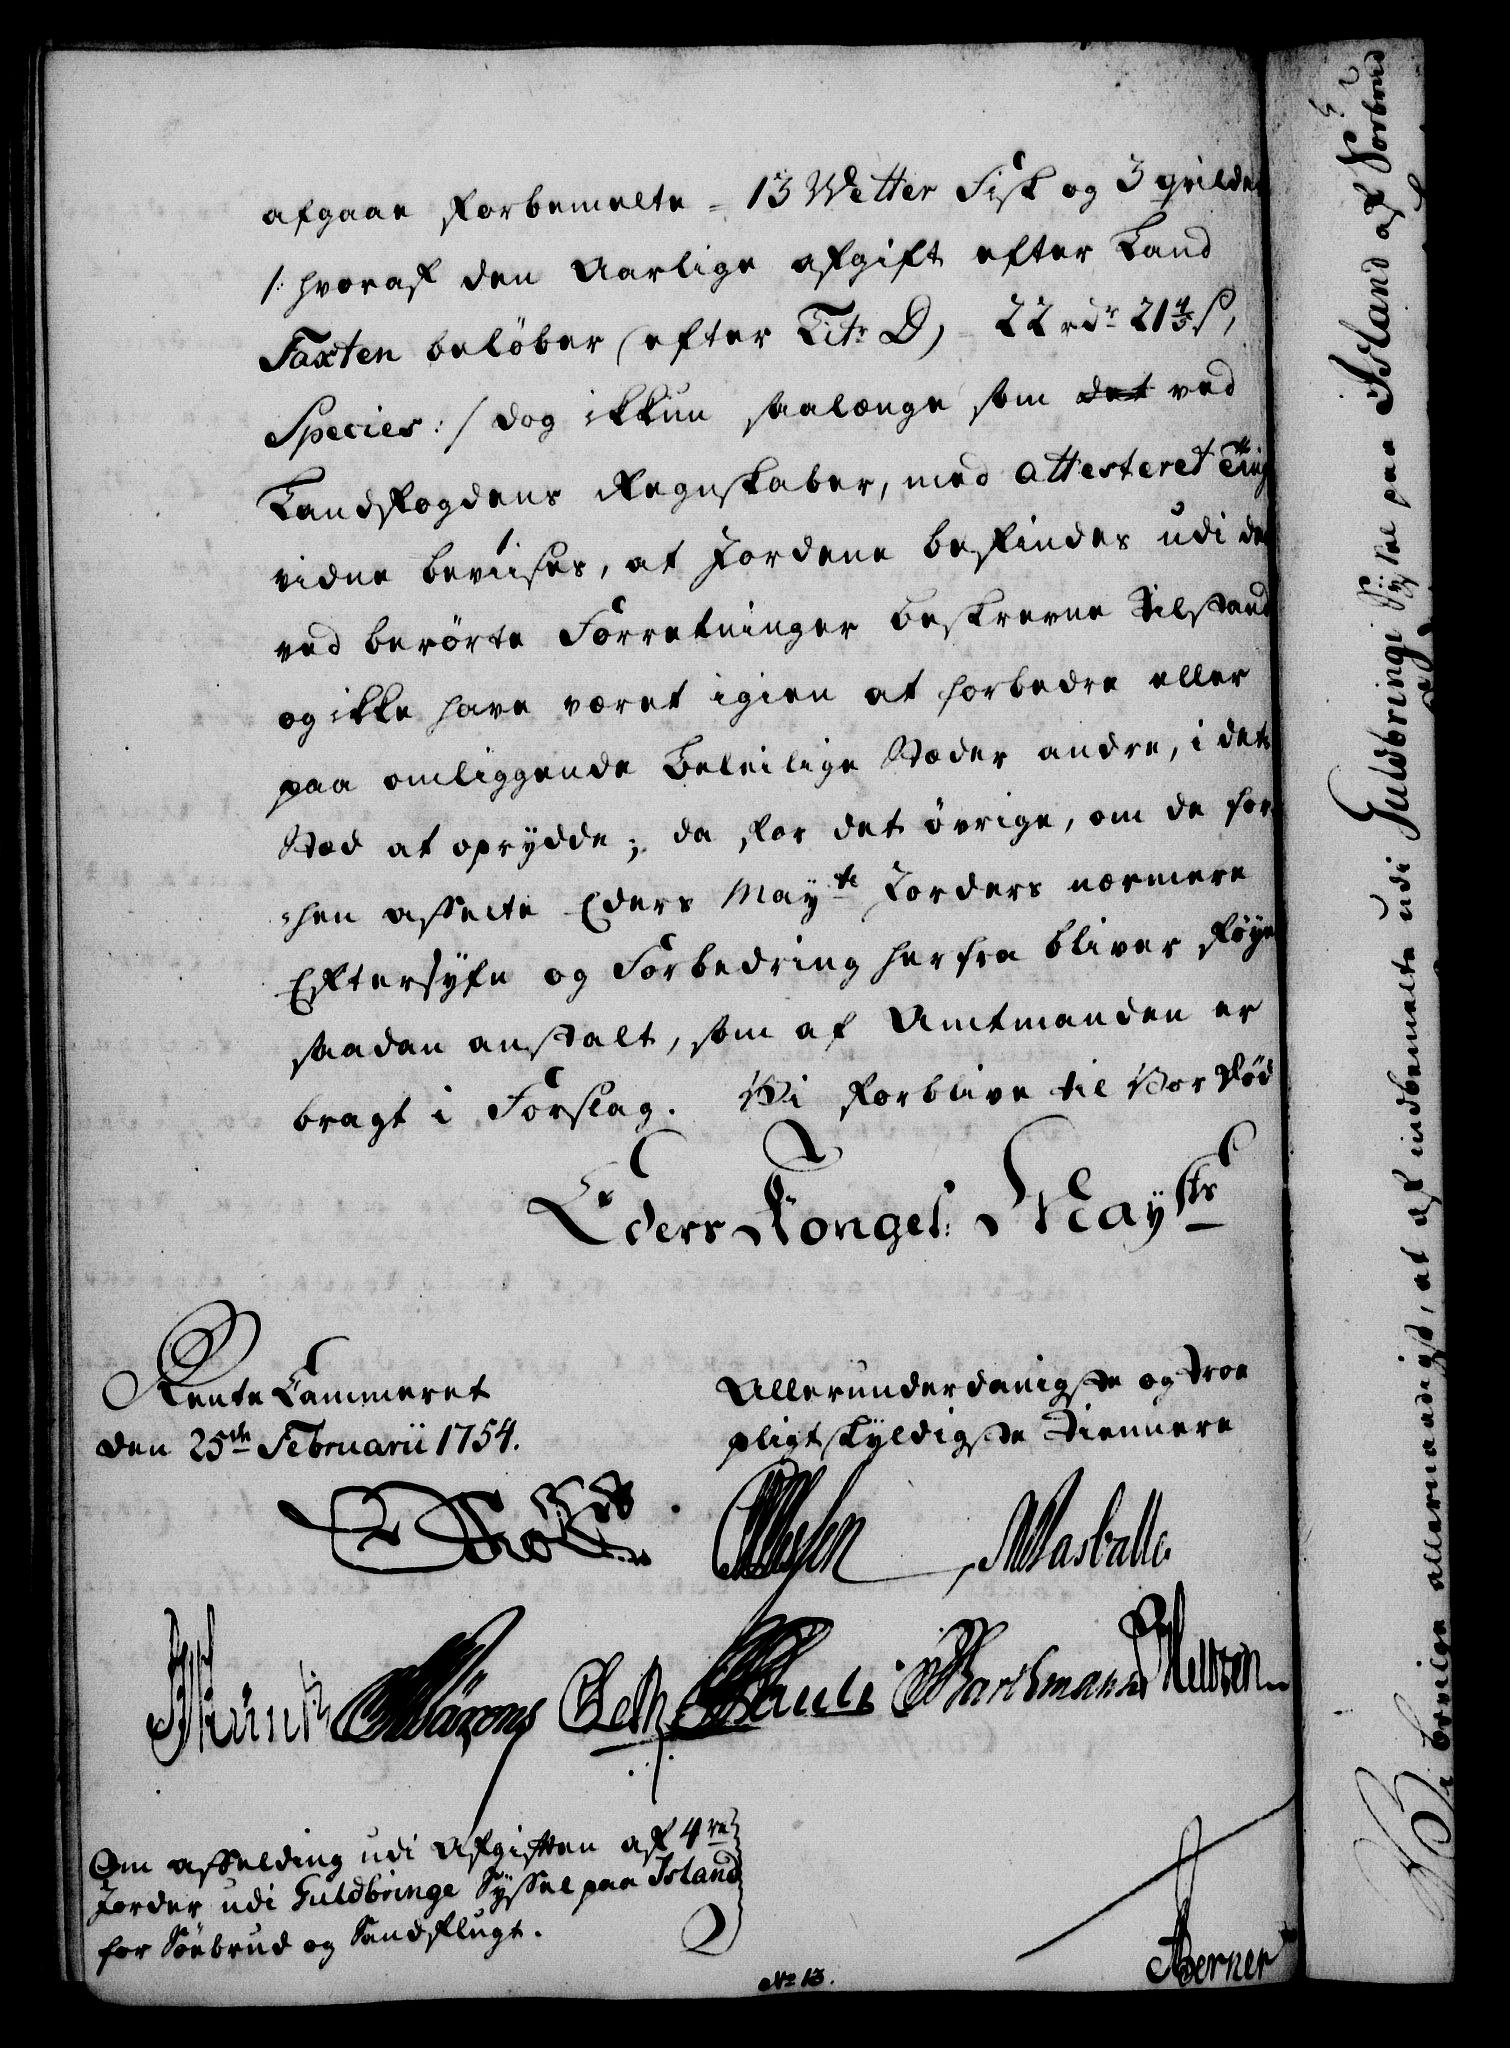 afgaae forbemelte = 13 Wetter Fisk og 3 gilder
/: hvoraf den Aarlige afgift efter Land
Taxten beløber (efter Litr D) = 22 rdr 21 4/5 ß,
Species :/ dog ikkun saalænge som det ved
Landfogdens Regnskaber, med attesteret Ting
vidne beviises, at Jordene befindes udi den
ved berørte Forretninger beskrevne Tilstand
og ikke have været igien at forbedre eller
paa omliggende beleilige Stæder andre, i dets
Stæd at oprydde; da for det øvrige, om de for
hen affelte Eders Mayts Jorders nærmere
Eftersyn og Forbedring herfra bliver føyet
saadan anstalt, som af Amtmanden er
bragt i Forslag. Vi forblive til Vor Død
Eders Kongel: Mayts
Rente Cammeret
den 25de Februarii 1754.
Allerunderdanigste og troe
pligtskyldigste Tiennere
Pauli
Bartsmann
Om affelding udi Afgiften af 4re
Jorder udi Guldbringe Syssel paa Island
for Søebrud og Sandflugt.
Berner
No 13.
Vi bevilge allernaadigst, at af indbemelte udi Guldbringe Syssel paa Island af Søebrud